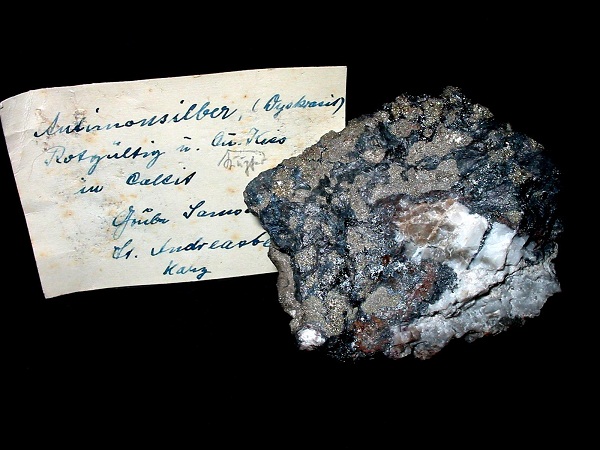 Antimonsilber, (Dyskrasit)
Rotgültig u. Cu. Kies
in Calcit
Grube Samso
St. Andreasbe
Harz